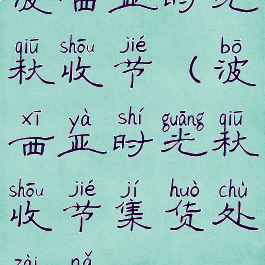 波西亚时光
qiū shōu jié bō
秋收节（波
xī yà shí guāng qiū
西亚时光秋
shōu jié jí huò chù
收节集货处
zài nǎ